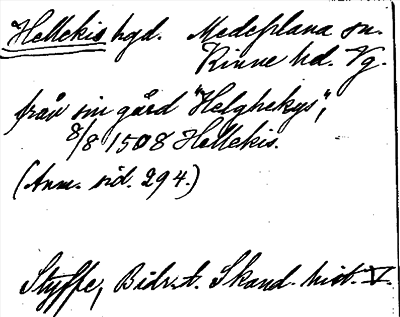 Hellekis hgd. Medelplana sn.
Kinne hd. Vg.
från sin gård "Helghekys",
8/8 1508 Hellekis.
(Anm. sid. 294.)
Styffe, Bidr. t. Skand. hist. V.